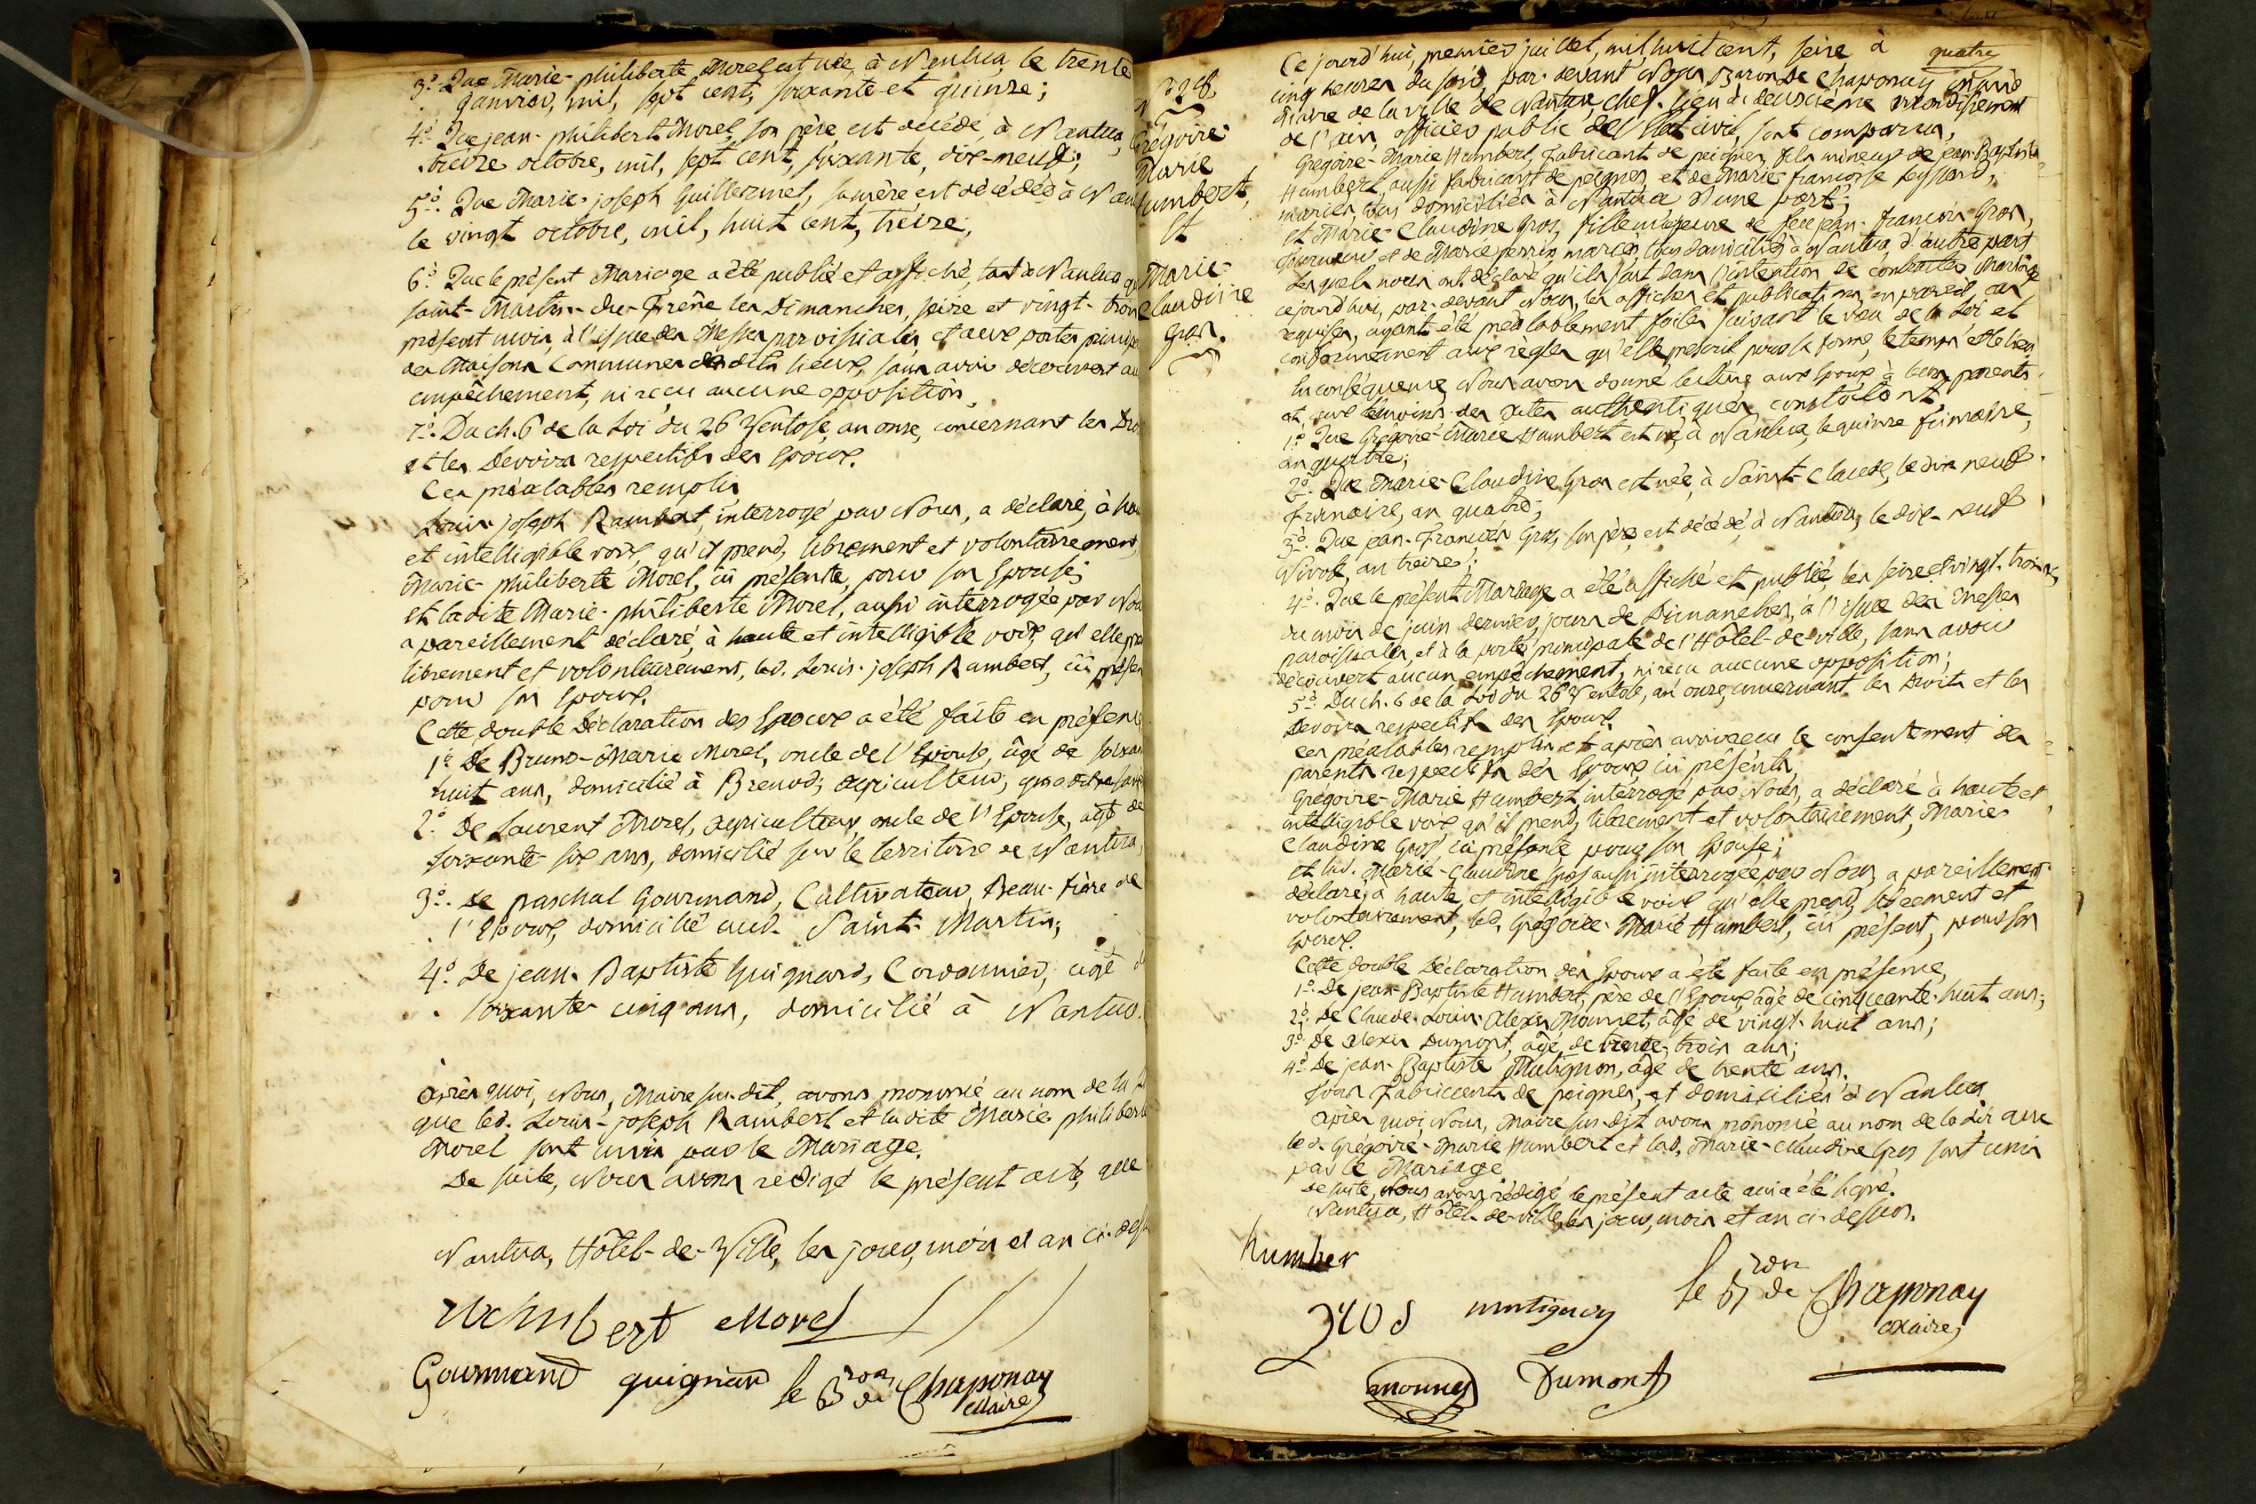 3º. Que Marie-philiberte Morel est née, à Nantua, le trente
janvier, mil, sept cent, soixante et quinze;
4º. Que jean-philibert Morel, son père est décédé, à Nantua,
treize octobre, mil, sept cent, soixante, dix-neuf;
5º. Que Marie-joseph Guillermet, sa mère est décédée à Nan
le vingt octobre, mil, huit cent, treize;
6º. Que le présent Mariage a été publié et affiché, tant à Nantua qu
saint-Martin-du-Frêne les Dimanches, seize et vingt-trois
présent mois, à l'issue des Messes paroissiales et aux portes princip
des Maisons Communes desdits lieux, sans avoir découvert au
empêchement, ni reçu aucune opposition,
7º. Du ch. 6 de la Loi du 26 Ventose, an onze, concernant les Dro
et les Devoirs respectifs des Epoux.
Ces préalables remplis
Louis-joseph Rambert, interrogé par Nous, a déclaré, à hau
et intelligible voix, qu'il prend, librement et volontairement,
Marie-philiberte Morel, ici présente, pour son Epouse;
et ladite Marie-philiberte Morel, aussi interrogée par Nou
a pareillement déclaré, à haute et intelligible voix, qu'elle pre
librement et volontairement, led. Louis-joseph Rambert, ici présen
pour son Epoux.
Cette double Déclaration des Epoux a été faite en présenc
1º. De Bruno-Marie Morel, oncle de l'Epouse, âgé de soixan
huit ans, domicilié à Brenod, agriculteur,
2º. De Laurent Morel, agriculteur oncle de l'Epouse, âgé de
soixante-six ans, domicilié sur le territoire de Nantua,
3º. De paschal Gourmand, Cultivateur, Beau-frère de
l'Epoux, domicilié aud. Saint-Martin,
4º. De jean-Baptiste Guignard, Cordonnier, âgé d
soixante cinq ans, domicilié à Nantua.
après quoi, Nous, Maire sus-dit, avons prononcé au nom de la
que led. Louis-joseph Rambert et ladite Marie-philibert
Morel sont unis par le Mariage.
De suite, Nous avons rédigé le présent acte, que
Nantua, Hôtel-de-Ville, les jour, mois et an ci-dess
Rambert Morel
Gourmand guignard le Bron de Chaponay
Maire
Nº 28.
Grégoire-
Marie
Humbert,
Et
Marie-
Claudine
Gros.
Ce jourd'hui, premier juillet, mil, huit cent, seize à quatre
cinq heures du soir, par-devant Nous, Baron De Chaponay Maire
de la ville de Nantua, chef-lieu du deuxième arrondissement
de l'ain, officier public de l'Etat civil, sont comparus,
Grégoire-Marie Humbert, Fabricant de peignes, fils mineur de jean-Baptiste
Humbert, aussi fabricant de peignes, et de Marie-françoise
mariés, tous domiciliés à Nantua d'une part;
et Marie-Claudine Gros, fille majeure de feu jean-françois Gros,
et de Marie perrin, mariés, tous domiciliés à Nantua, d'autre part
Lesquels nous ont déclaré qu'ils sont dans l'intention de contracter Mariage
cejourd'hui, par-devant Nous, les affiches et publications, en pareil cas
requises, ayant été préalablement faites suivant le vœu de la Loi et
conformément aux règles qu'elle prescrit pour la forme, le temps et le lieu
En conséquence, Nous avons donné lecture aux Epoux, à leurs parents
et aux témoins des actes authentiques, constatant,
1º. Que Grégoire-Marie Humbert est né, à Nantua, le quinze frimaire,
an quatre;
2º. Que Marie-Claudine Gros est née, à Saint-Claude, le dix-neuf
frimaire, an quatre;
3º. Que jean-françois Gros, son père, est décédé, à Nantua, le dix-neuf
Nivose, an treize;
4º. Que le présent Mariage a été affiché et publié, les seize et vingt-trois
du mois de juin dernier, jours de Dimanches, à l'issue des Messes
paroissiales, et à la porte principale de l'Hôtel-de-ville, sans avoir
découvert aucun empêchement, ni reçu aucune opposition;
5º. Du ch. 6 de la Loi du 26 Ventose, an onze, concernant les Droits et les
Devoirs respectifs des Epoux.
ces préalables remplis et après avoir reçu le consentement des
parents respectifs des Epoux, ici présents,
Grégoire-Marie Humbert, interrogé par Nous, a déclaré à haute et
intelligible voix qu'il prend, librement et volontairement, Marie
Claudine Gros ici présente pour son Epouse;
et lad. Marie-Claudine Gros aussi interrogée par Nous a pareillement
déclaré, à haute, et intelligible voix qu'elle prend, librement et
volontairement, led. Grégoire-Marie Humbert, ici présent, pour son
Epoux.
Cette double Déclaration des Epoux a été faite en présence,
1º. De jean-Baptiste Humbert, père de l'Epoux, âgé de cinquante-huit ans;
2º. De Claude-Louis-Alexis Mounet, âgé de vingt-huit ans;
3º. De alexis Dumont, âgé de trente-trois ans;
4º. De jean-Baptiste Mutignon, âgé de trente ans.
Tous Fabricants de peignes, et domiciliés à Nantua
après quoi, Nous, Maire sus-dit avons prononcé au nom de la Loi que
led. Grégoire-Marie Humbert et lad. Marie-Claudine Gros sont unis
par le Mariage
de suite, Nous avons rédigé le présent acte qui a été signé.
Nantua, Hôtel-de-ville, les jour, mois et an ci-dessus.
humber
gros mutignon le Bron de Chaponay
Maire
mounet Dumont